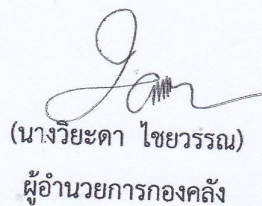 (นางวิยะดา  ไชยวรรณ)
ผู้อำนวยการกองคลัง